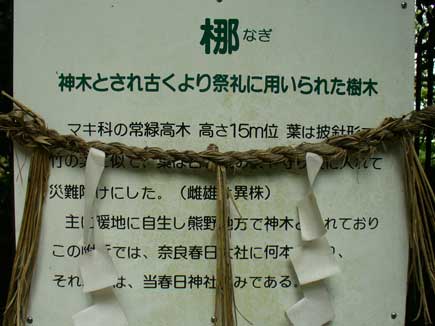 梛 なぎ
神木とされ古くより祭礼に用いられた樹木
マキ科の常緑高木 高さ15m位 葉は披針形
竹の 似て、葉は に入れて
災難除けにした。(雌雄 異株)
主に暖地に自生し熊野地方で神木 れており
この では、奈良春日大社に何本 り、
それ は、当春日神社 みである。